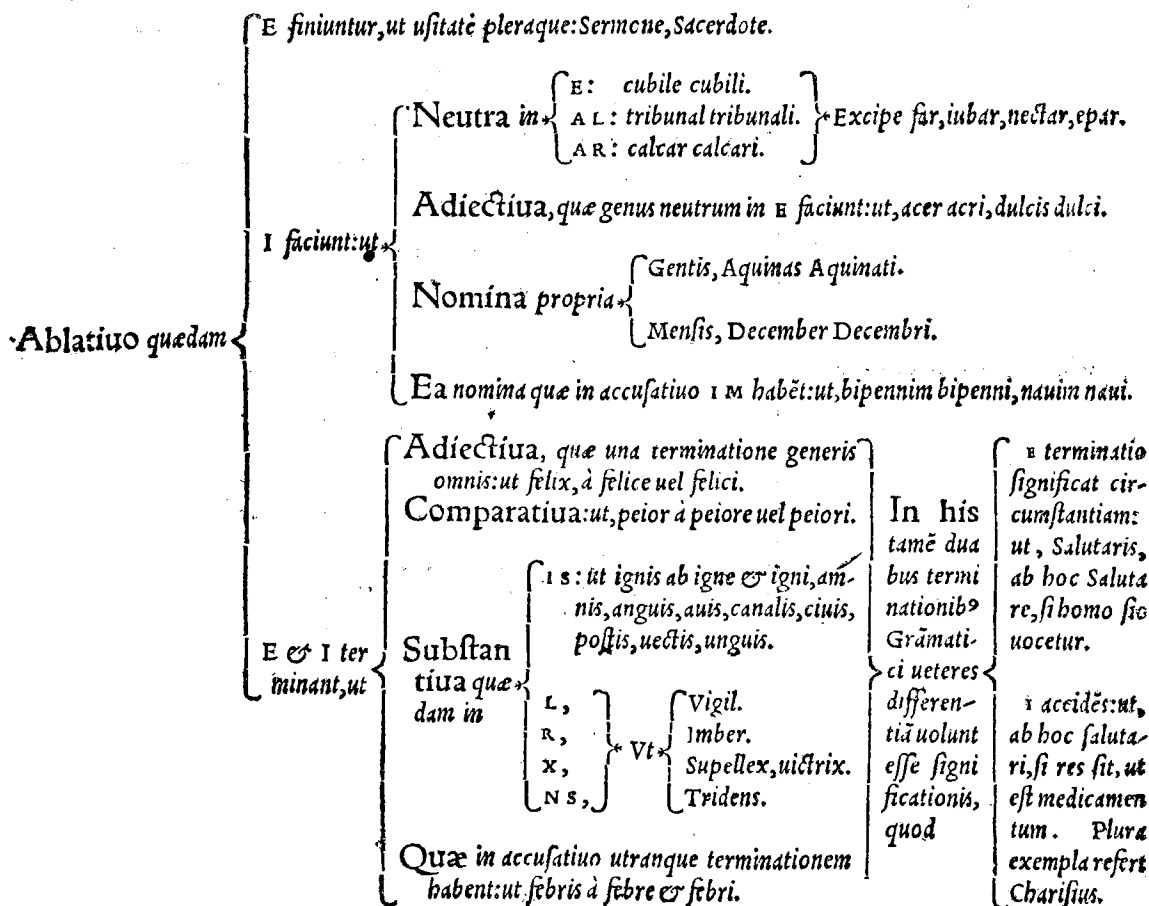 E finiuntur,ut uſitatè pleraque:Sermone,Sacerdote.
Ablatiuo quædam
I faciunt:ut
Neutra in
E: cubile cubili.
AL: tribunal tribunali.
AR: calcar calcari.
Excipe far,iubar,nectar,epar.
Adiectiua, quæ genus neutrum in E faciunt:ut, acer acri, dulcis dulci.
Nomina propria
Gentis, Aquinas Aquinati.
Menſis, December Decembri.
Ea nomina quæ in accuſatiuo IM habẽt:ut,bipennim bipenni,nauim naui.
E & I ter
minant,ut
Adiectiua, quæ una terminatione generis
omnis:ut felix, à felice uel felici.
Comparatiua:ut, peior à peiore uel peiori.
Subſtan
tiua quæ
dam in
IS: ut ignis ab igne & igni, am-
nis, anguis, auis, canalis, ciuis,
poſtis, uectis, unguis.
L,
R,
X,
NS,
Vt
Vigil.
Imber.
Supellex, uictrix.
Tridens.
Quæ in accuſatiuo utranque terminationem
habent:ut febris à febre & febri.
In his
tamẽ dua
bus termi
nationibꝰ
Grãmati-
ci ueteres
differen-
tiã uolunt
eſſe ſigni
ficationis,
quod
E terminatio
ſignificat cir-
cumſtantiam:
ut, Salutaris,
ab hoc Saluta
re, ſi homo ſic
uocetur.
I accidẽs:ut,
ab hoc ſaluta-
ri, ſi res ſit, ut
eſt medicamen
tum. Plura
exempla refert
Chariſius.